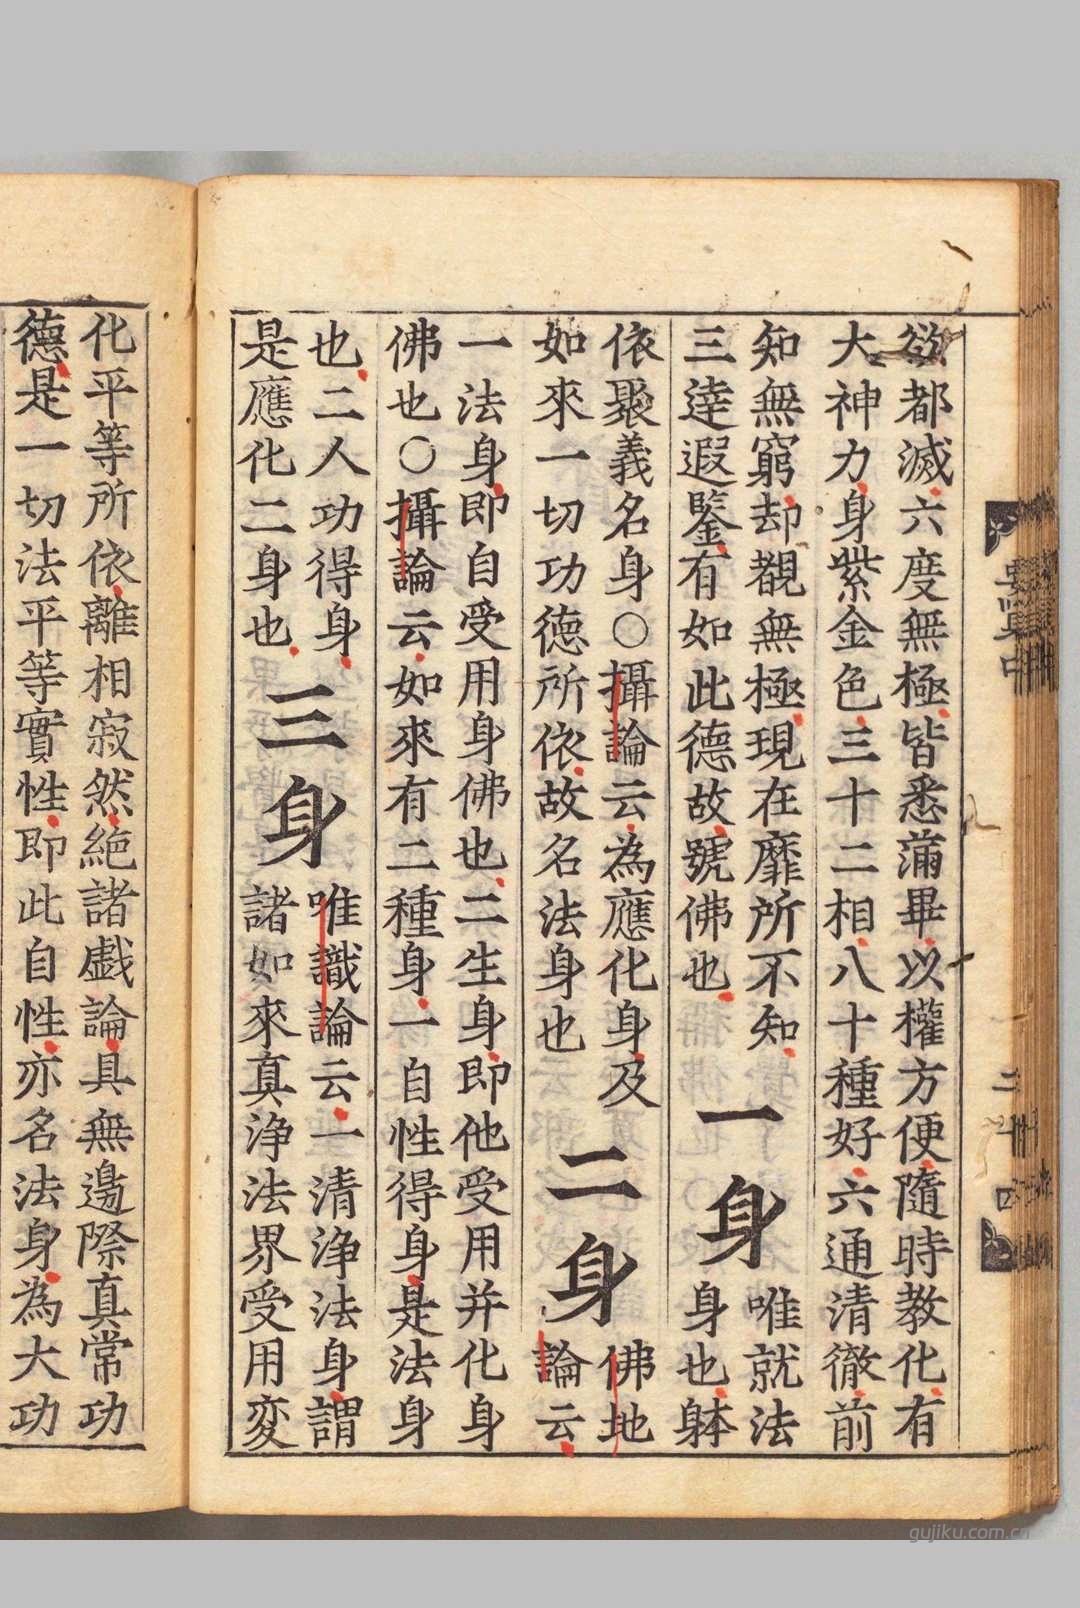 欲都滅六度無極皆悉蒲畢以權方便隨時教化有
大神力身紫金色三十二相八十種好六通清徹前
知無窮却覩無極現在靡所不知
三達遐鑒有如此德故號佛也
一身
唯就法
身也躰
依聚義名身〇攝論云為應化身及
如來一切功德所依故名法身也
二身
佛地
論云
一法身即自受用身佛也二生身即他受用并化身
佛也〇攝論云如來有二種身一自性得身是法身
也二人功得身
是應化二身也
三身
唯識論云一清淨法身謂
諸如來真淨法界受用変
化平等所依離相寂然絶諸戯論具無邊際真常功
德是一切法平等實性即此自性亦名法身為大功
二十四
gujiku.com.cn